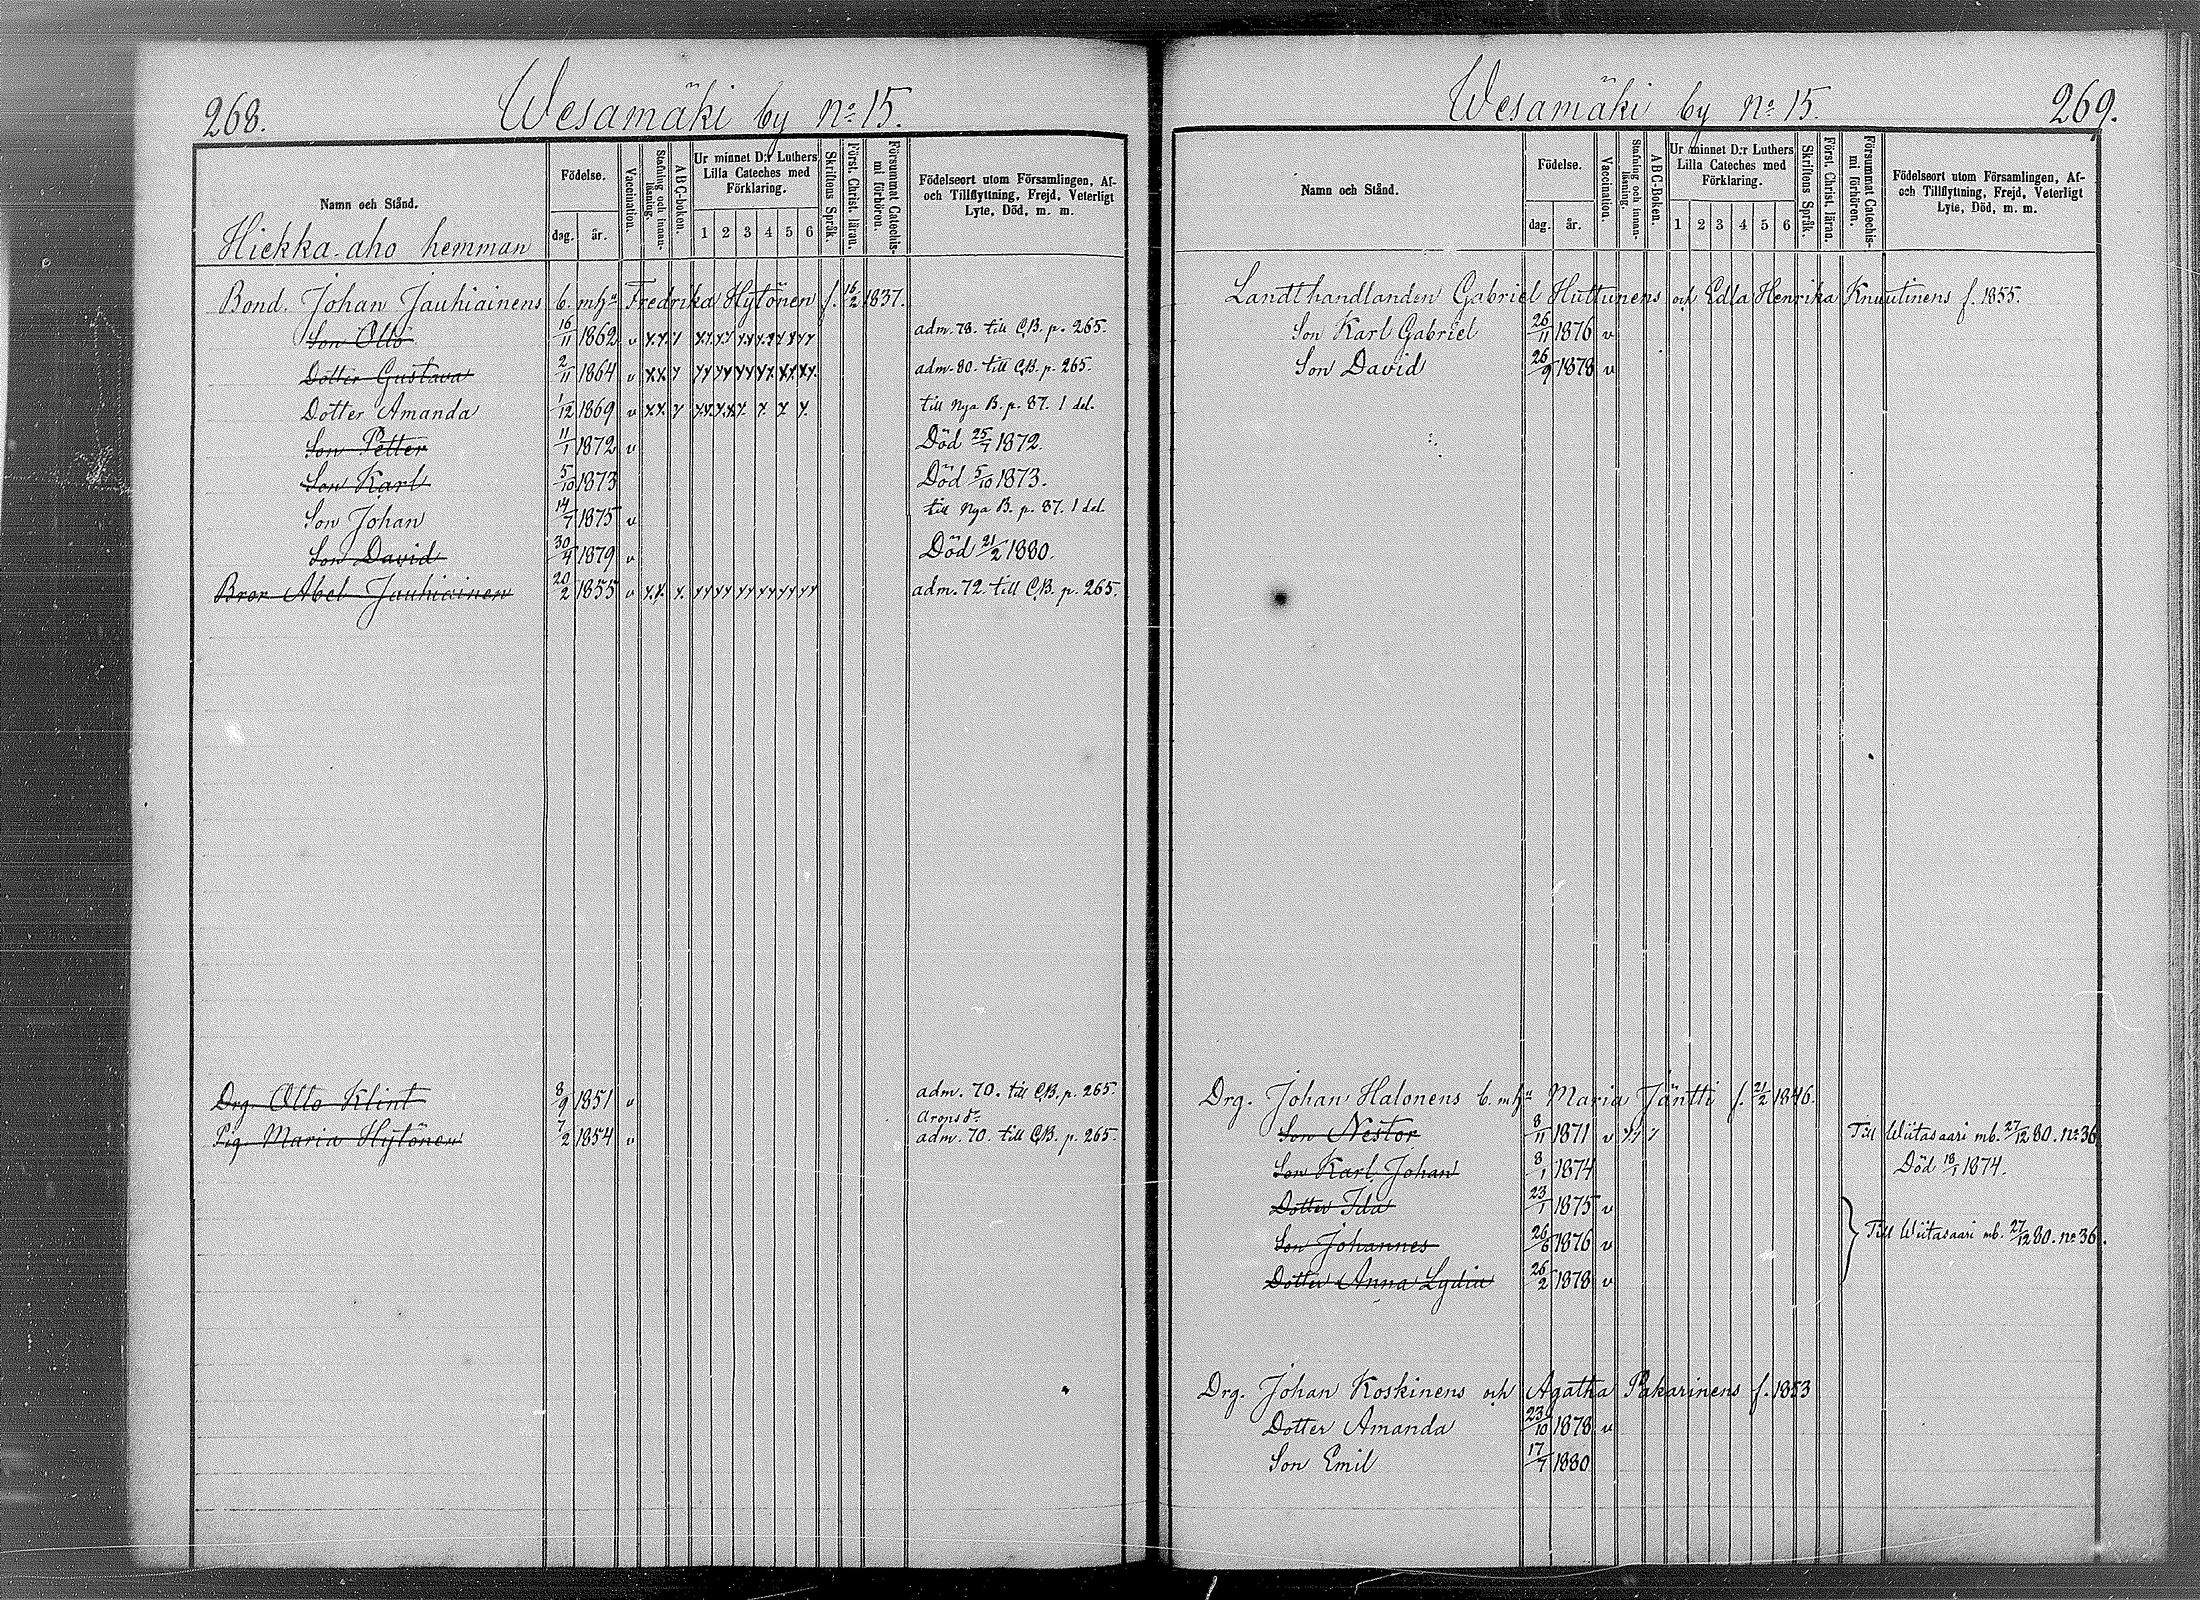 268.
Wesamäki by no: 15.
Namn och Stånd.
Födelse.
dag.
år.
Vaccination.
Stafning och innan-
läsning.
ABC-boken.
Ur minnet D:r Luthers
Lilla Cateches med
Förklaring.
1 2 3 4 5 6
Skriftens Språk.
Först. Christ. läran.
Försummat Catechis-
mi förhören.
Födelseort utom Församlingen, Af-
och Tillflyttning, Frejd, Veterligt
Lyte, Död, m. m.
Hiekka-aho hemman
Bond. Johan Jauhiainens b. mh:n Fredrika Hytönen f. 16/2 1837.
Son Otto 16/11 1862 v adm. 78. till C.B. p. 265.
Dotter Gustava 2/11 1864 v adm. 80. till C.B. p. 265.
Dotter Amanda 1/12 1869 v till Nya B. p. 87. 1 del.
Son Petter 11/1 1872 v Död 25/7 1872.
Son Karl 5/10 1873 Död 5/10 1873.
Son Johan 14/7 1875 v till Nya B. p. 87. 1 del.
Son David 30/4 1879 v Död 21/2 1880.
Bror Abel Jauhiainen 20/2 1855 v adm. 72. till C.B. p. 265.
Drg. Otto Klint 8/9 1851 v adm. 70. till C.B. p. 265.
Pig. Maria Hytönen 7/2 1854 v adm. 70. till C.B. p. 265.
Wesamäki by no: 15.
269.
Namn och Stånd.
Födelse.
dag.
år.
Vaccination.
Stafning och innan-
läsning.
ABC-Boken.
Ur minnet D:r Luthers
Lilla Cateches med
Förklaring.
1 2 3 4 5 6
Skriftens Språk.
Först. Christ. läran.
Försummat Catechis-
mi förhören.
Födelseort utom Församlingen, Af-
och Tillflyttning, Frejd, Veterligt
Lyte, Död, m. m.
Landthandlanden Gabriel Huttunens och Edla Henrika Knuutinens f. 1855.
Son Karl Gabriel 26/11 1876 v
Son David 26/9 1878 v
Drg. Johan Halonens b. mh:n Maria Jäntti f. 21/2 1846.
Son Nestor 8/11 1871 v Till Wiitasaari mb. 27/12 80. no 36
Son Karl Johan 8/1 1874 Död 18/1 1874.
Dotter Ida 23/1 1875 v
Son Johannes 26/6 1876 v Till Wiitasaari mb. 27/12 80. no 36.
Dotter Anna Lydia 26/2 1878 v
Drg. Johan Koskinens och Agatha Pakarinens f. 1853
Dotter Amanda 23/10 1878 v
Son Emil 17/7 1880